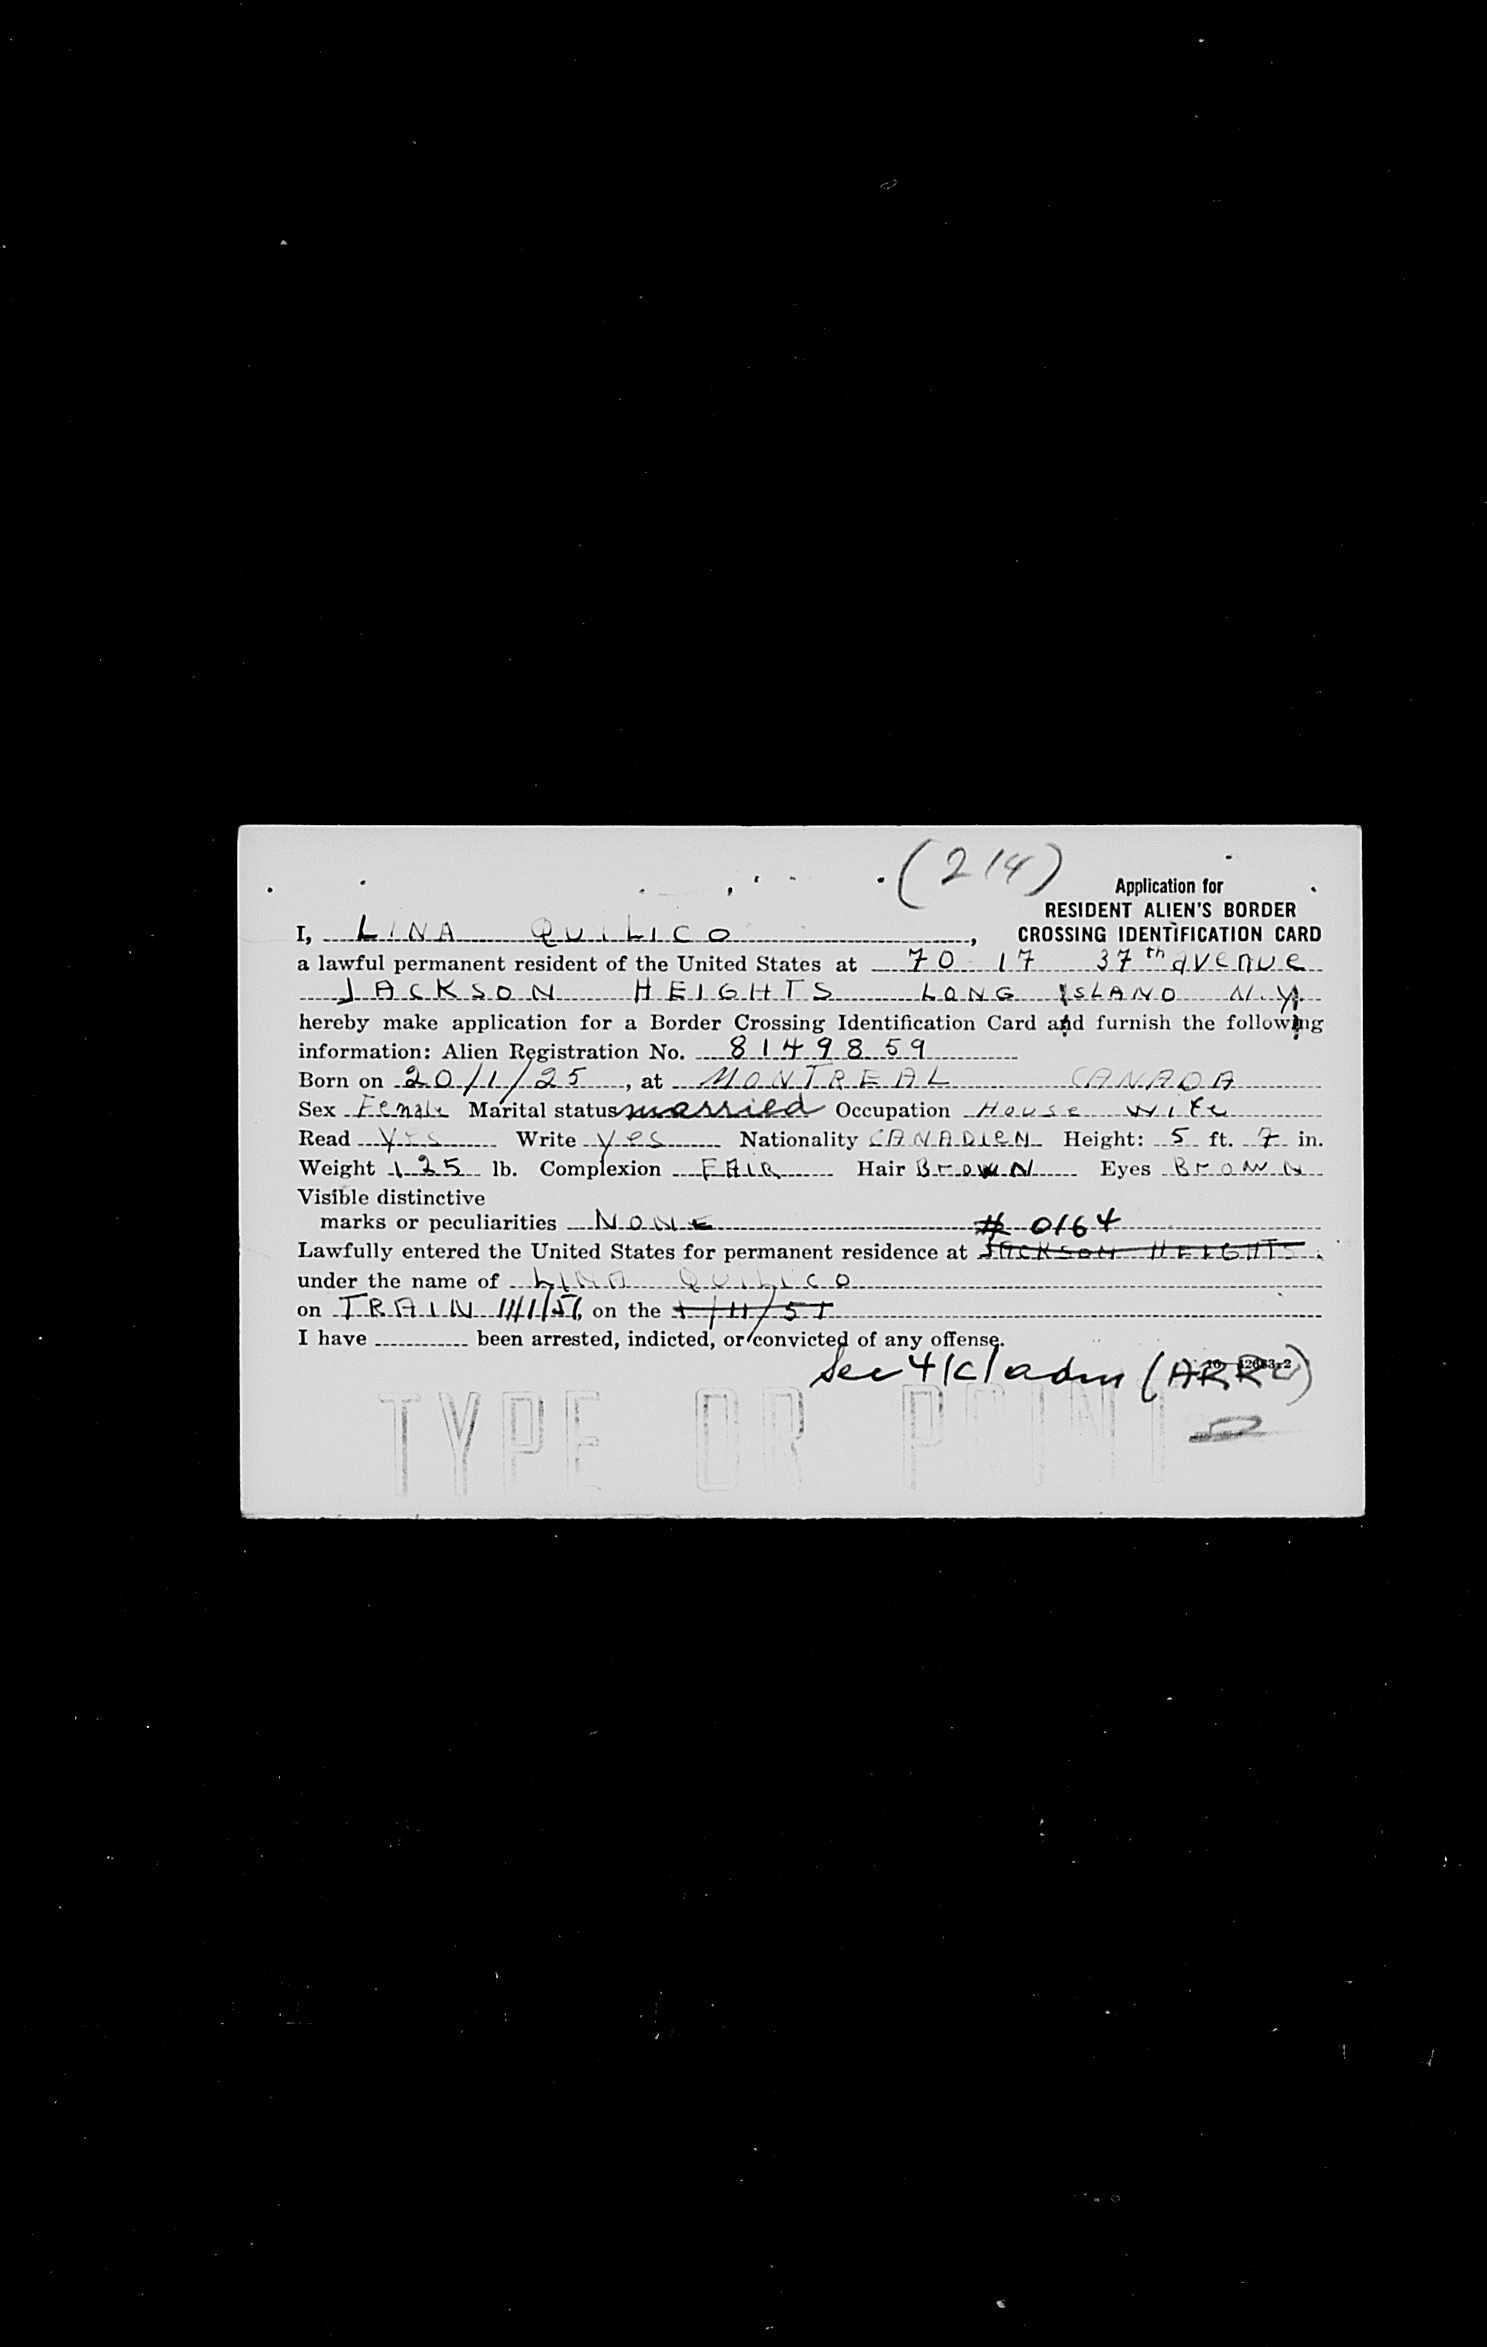 (214)
Application for
RESIDENT ALIEN'S BORDER
I, LINA QUILICO, CROSSING IDENTIFICATION CARD
a lawful permanent resident of the United States at 70 17 37th avenue
JACKSON HEIGHTS LONG ISLAND N.Y.
hereby make application for a Border Crossing Identification Card and furnish the following
information: Alien Registration No. 8149859
Born on 20/1/25, at MONTREAL CANADA
Sex Female Marital status married Occupation House wife
Read Yes Write yes Nationality CANADIEN Height: 5 ft. 7 in.
Weight 125 lb. Complexion FAIR Hair BrowN Eyes BrowN
Visible distinctive
marks or peculiarities NONE # 0164
Lawfully entered the United States for permanent residence at JACKSON HEIGHTS.
under the name of LINA QUILICO
on TRAIN 11/1/51, on the 1/11/51
I have been arrested, indicted, or convicted of any offense.
Sec 4/c/adm (ARRC)
TYPE OR PRINT